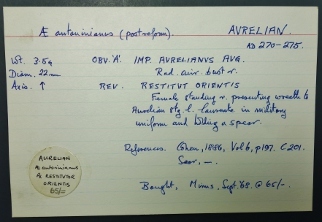 Æ antoninianus (post reform). AURELIAN.
AD 270-275.
Wt. 3.5g OBV. 'A'. IMP. AURELIANUS AUG.
Diam. 22mm Rad. cuir. bust r.
Axis. ↑ REV. RESTITUT ORIENTIS
Female standing r. presenting wreath to
Aurelian stg l. laureate in military
uniform and holding a spear.
References. Cohen, 1886, Vol 6, p197. C201.
Sear, —.
Bought, Sept. '68. @ 65/-.
AURELIAN
Æ antoninianus
R. RESTITUT
ORIENTIS
65/-